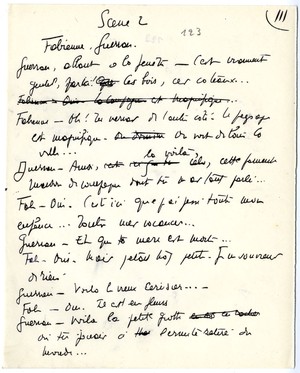 Scène 2
III
123
Fabienne, Guerran.
Guerran, allant à la fenêtre – C'est vraiment
joli, parbleu! Ces bois, ces coteaux...
Fabienne – Oui. La campagne est magnifique...
Fabienne – Oh! Tu verras de l'autre côté: le paysage
est magnifique. On voit de loin la
ville...
Guerran – Ainsi, la voilà, cette fameuse
maison de campagne dont tu m'as tant parlé...
Fab – Oui. C'est ici que j'ai passé toute mon
enfance... Toutes mes vacances...
Guerran – Et que ta mère est morte...
Fab – Oui. Mais j'étais trop petite. Je me souviens
de rien.
Guerran – Voilà le vieux cerisier...
Fab – Oui. Il est en fleurs
Guerran – Voilà la petite grotte
où tu jouais à l'ermite retiré du
monde...